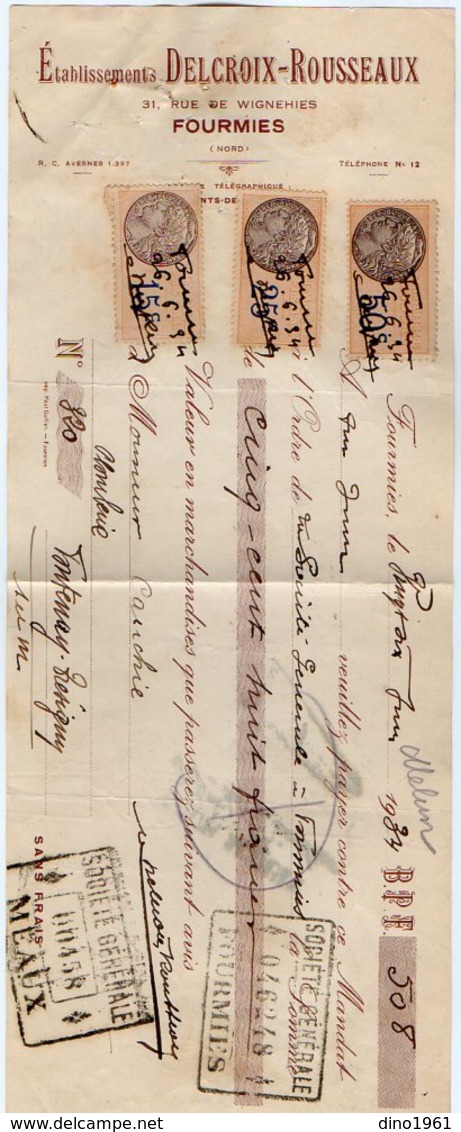 Établissements DELCROIX-ROUSSEAUX
31, RUE DE WIGNEHIES
FOURMIES
(NORD)
R. C. AVESNES 1.337
TÉLÉPHONE No 12
TÉLÉGRAPHIQUE :
NTS-DE-
Fourmies
26.6.34
15c
Fourmies
26.6.34
25c
Fourmies
26.6.34
50c
Fourmies, le Vingt six Juin 1934 B.P.F. 508
Melun
A fin Juin veuillez payer contre ce Mandat
à l'Ordre de la Société Générale à Fourmies la Somme
de cinq-cent huit francs
Valeur en marchandises que passerez suivant avis
à Monsieur Cauchie
Delcroix Rousseaux
Fontenay-Trésigny
S. et M.
No 820
SANS FRAIS
Imp. Fourmies
SOCIÉTÉ GÉNÉRALE
046248
FOURMIES
SOCIÉTÉ GÉNÉRALE
00458
MEAUX
dino1961